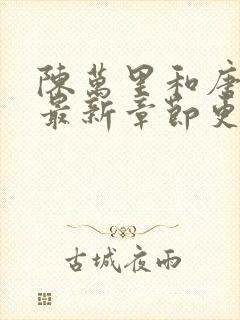 陳萬里和唐
最新章節更
古城夜雨